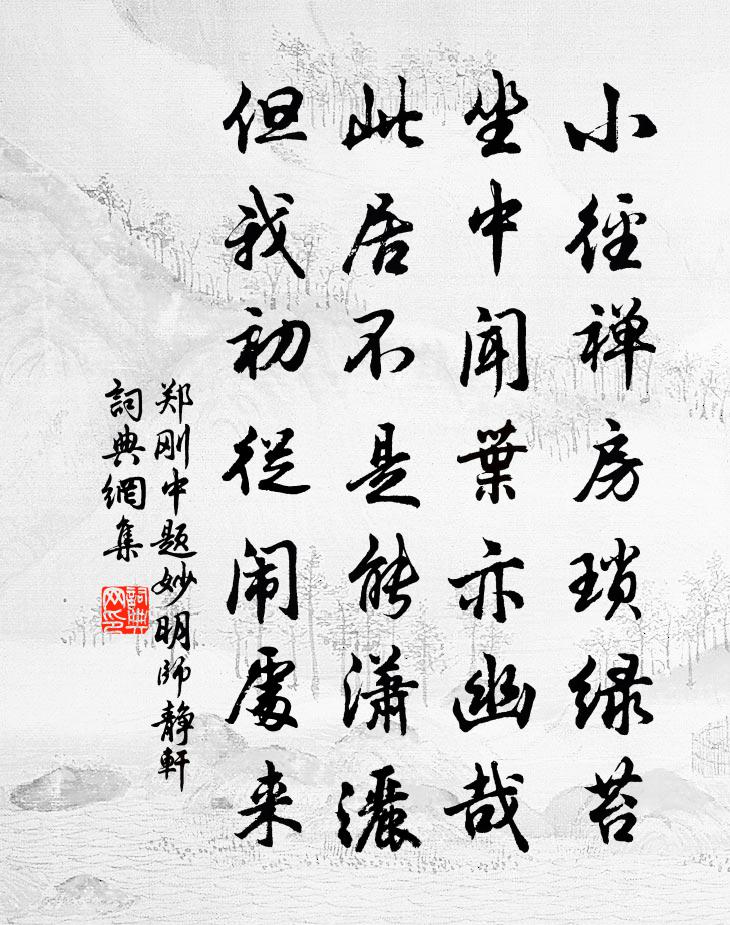 小径禅房琐绿苔
坐中闻葉亦幽哉
此居不是能潇灑
但我初從闹處来
郑刚中题妙明师静軒
詞典網集
詞典网印